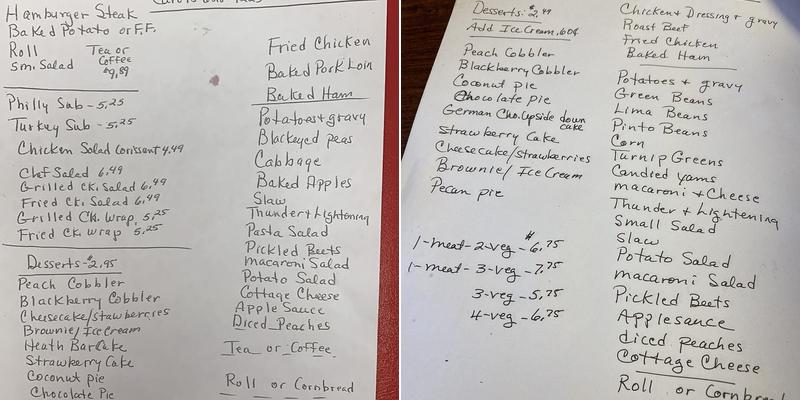 Hamburger Steak
Baked Potato or F.F.
Roll Tea or
Sm. Salad Coffee
$9,89
Philly Sub - 5,25
Turkey Sub - 5,25
Chicken Salad Corissant 4,49
Chef Salad 6,49
Grilled Ck. Salad 6,49
Fried Ck. Salad 6,49
Grilled Ck. Wrap. 5,25
Fried Ck. Wrap 5,25
Desserts-$2,95
Peach Cobbler
Blackberry Cobbler
Cheesecake/stawberries
Brownie/Ice Cream
Heath Bar Cake
Strawberry Cake
Coconut pie
Chocolate Pie
Fried Chicken
Baked Pork Loin
Baked Ham
Potatoes + gravy
Blackeyed peas
Cabbage
Baked Apples
Slaw
Thunder + Lightening
Pasta Salad
Pickled Beets
macaroni Salad
Potato Salad
Cottage Cheese
Apple Sauce
Diced Peaches
Tea or Coffee
Roll or Cornbread
Desserts-$2,99
Add Ice Cream,60¢
Peach Cobbler
Blackberry Cobbler
Coconut pie
Chocolate pie
German Cho. Upside down
cake
Strawberry Cake
Cheesecake/strawberries
Brownie/Ice Cream
Pecan pie
1-meat-2-veg-$6,75
1-meat-3-veg-7,75
3-veg-5,75
4-veg-6,75
Chicken + Dressing + gravy
Roast Beef
Fried Chicken
Baked Ham
Potatoes + gravy
Green Beans
Lima Beans
Pinto Beans
Corn
Turnip Greens
Candied Yams
macaroni + Cheese
Thunder + Lightening
Small Salad
Slaw
Potato Salad
macaroni Salad
Pickled Beets
Applesauce
diced peaches
Cottage Cheese
Roll or Cornbread